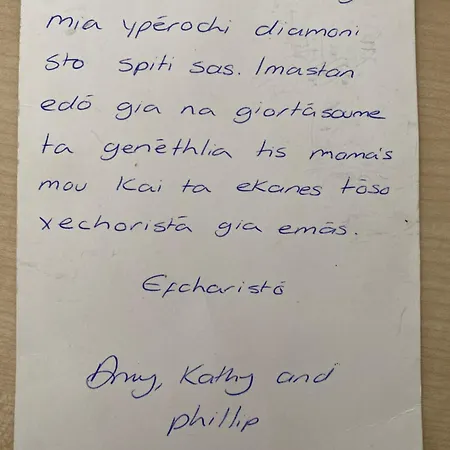 mia ypérochi diamoní
sto spiti sas. Imastan
edó gia na giortásoume
ta genéthlia tis mamás
mou kai ta ekanes tóso
xechoristá gia emás.
Efcharistó
Amy, Kathy and
phillip